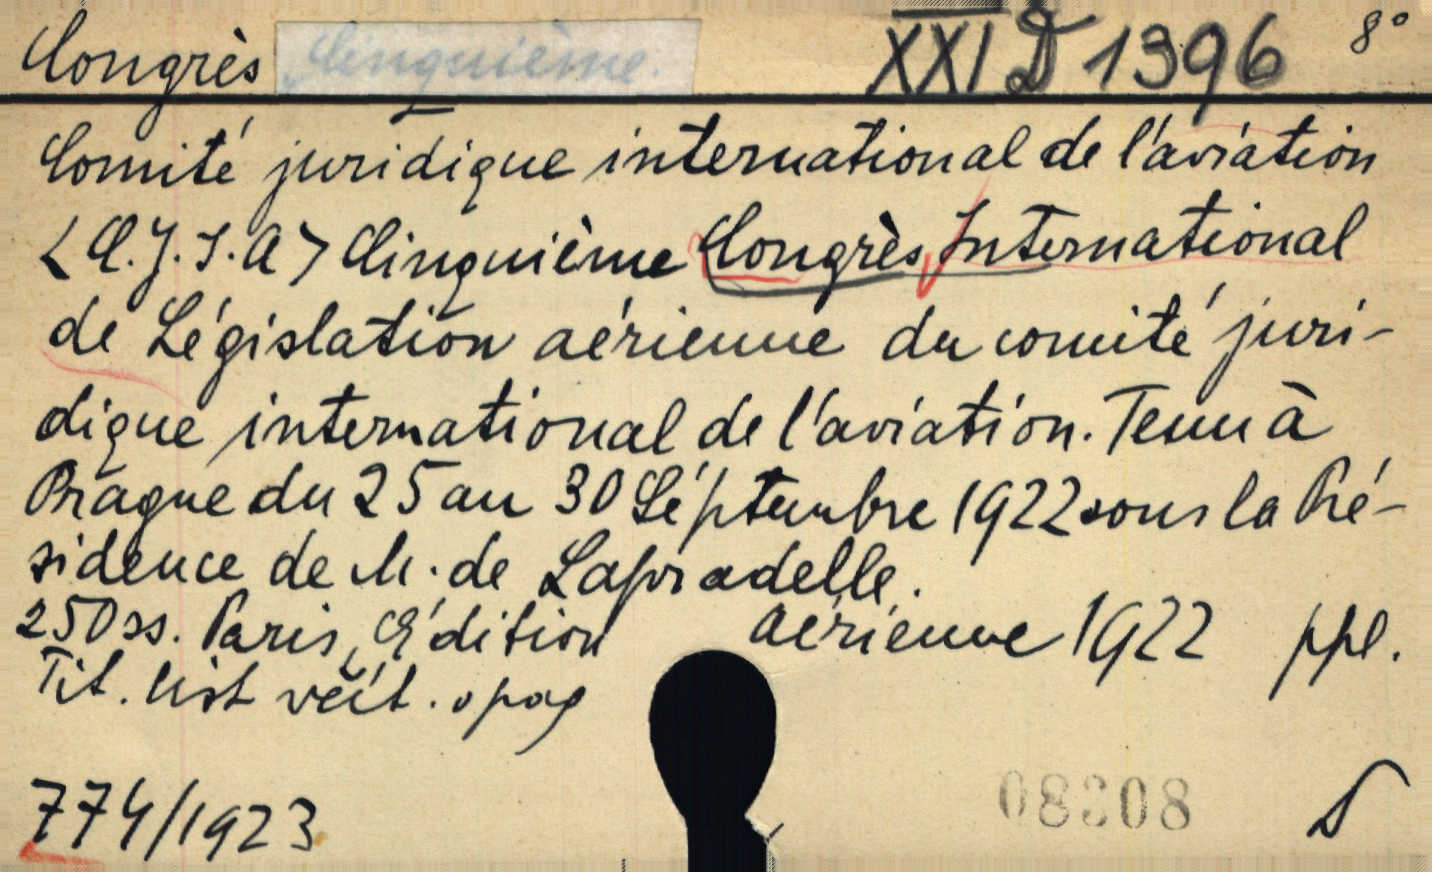 Congrès Cinquième. XXI D 1396 8°
Comité juridique international de l'aviation
<C.J.I.A> Cinquième Congrès International
de Législation aérienne du comité juri-
dique international de l'aviation. Tenu à
Prague du 25 au 30 Séptembre 1922 sous la Pré-
sidence de M. de Lapradelle.
250 ss. Paris, Édition aérienne 1922 ppl.
Tit. list večt. opag
774/1923
08308